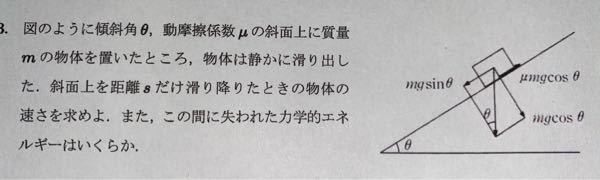 3. 図のように傾斜角θ，動摩擦係数μの斜面上に質量
mの物体を置いたところ，物体は静かに滑り出し
た．斜面上を距離sだけ滑り降りたときの物体の
速さを求めよ．また，この間に失われた力学的エネ
ルギーはいくらか．
mgsinθ
μmgcos θ
θ
mgcos θ
θ